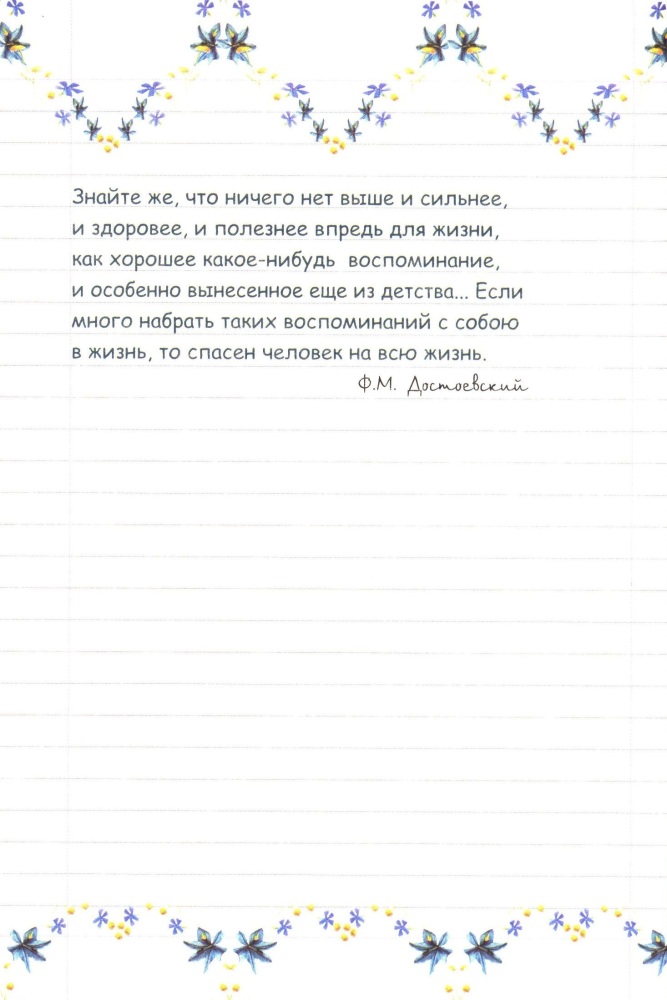 Знайте же, что ничего нет выше и сильнее,
и здоровее, и полезнее впредь для жизни,
как хорошее какое-нибудь воспоминание,
и особенно вынесенное еще из детства... Если
много набрать таких воспоминаний с собою
в жизнь, то спасен человек на всю жизнь.
Ф.М. Достоевский